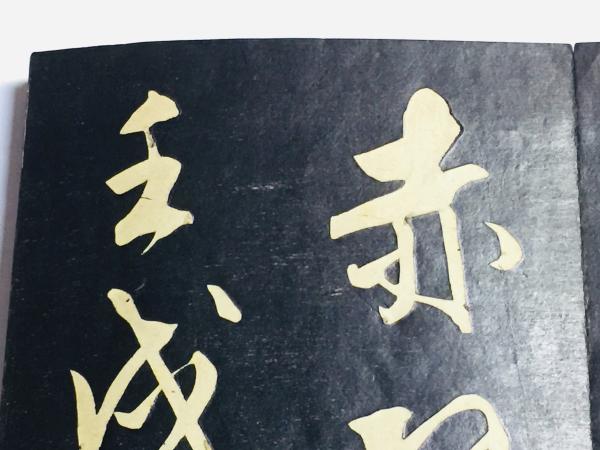 赤
壬戌